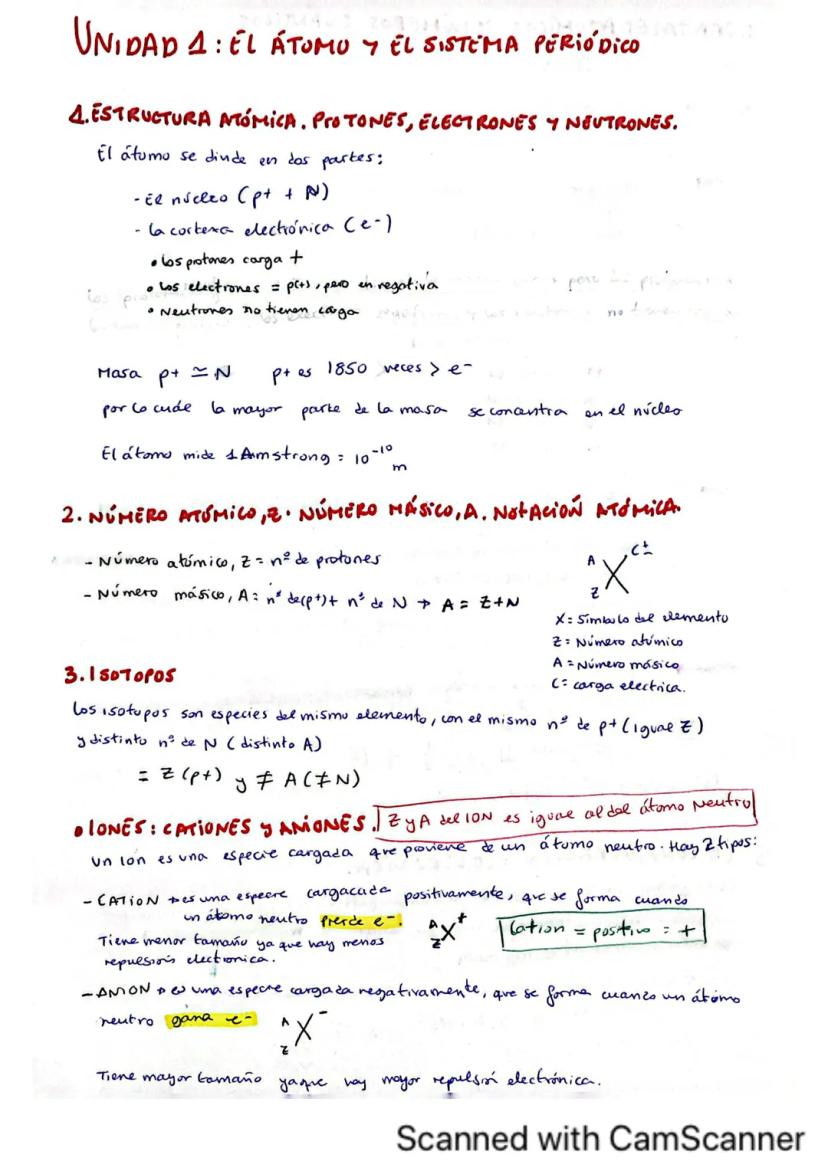 UNIDAD 1: EL ÁTOMO Y EL SISTEMA PERIÓDICO
1. ESTRUCTURA ATÓMICA. PROTONES, ELECTRONES Y NEUTRONES.
El átomo se divide en dos partes:
- El núcleo (p+ + N)
- la corteza electrónica (e-)
• los protones carga +
• los electrones = p(+), pero en negativa
• Neutrones no tienen carga
Masa p+ ≃ N p+ es 1850 veces > e-
por lo cude la mayor parte de la masa se concentra en el núcleo
El átomo mide 1 Amstrong = 10⁻¹⁰ m
2. NÚMERO ATÓMICO, Z. NÚMERO MÁSICO, A. NOTACIÓN ATÓMICA.
- Número atómico, Z = nº de protones
- Número másico, A = nº de (p+) + nº de N → A = Z + N
A C±
X
Z
X = Símbolo del elemento
Z = Número atómico
A = Número másico
C = carga electrica.
3. ISOTOPOS
Los isotopos son especies del mismo elemento, con el mismo nº de p+ (igual Z)
y distinto nº de N (distinto A)
= Z (p+) y ≠ A (≠ N)
• IONES: CATIONES Y ANIONES. Z y A del ION es igual al del átomo Neutro
Un Ion es una especie cargada que proviene de un átomo neutro. Hay 2 tipos:
- CATION → es una especie cargacada positivamente, que se forma cuando
un átomo neutro Pierde e-.
A + X Z
Cation = positivo = +
Tiene menor tamaño ya que hay menos
repulsión electronica.
- ANION → es una especie cargada negativamente, que se forma cuando un átomo
neutro gana e-
A - X Z
Tiene mayor tamaño ya que hay mayor repulsión electrónica.
Scanned with CamScanner